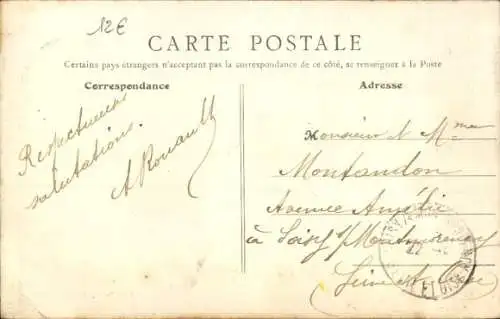 12€
CARTE POSTALE
Certains pays étrangers n'acceptant pas la correspondance de ce côté, se renseigner à la Poste
Correspondance
Adresse
Respectueuses
salutations.
A Rouault
Monsieur & Mme
Montandon
Avenue Amélie
à Soisy s/Montmorency
Seine et Oise